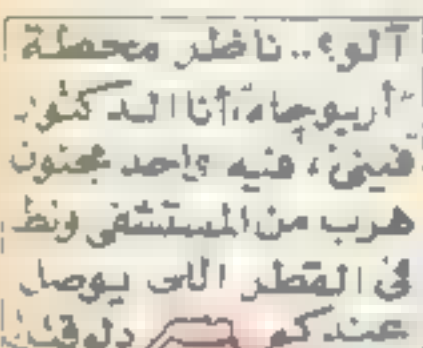 آلو؟.. ناظر محطة
"أريوجا"، أنا الدكتور
فيني، فيه واحد مجنون
هرب من المستشفى ونط
في القطر اللي يوصل
عندكم دلوقتى